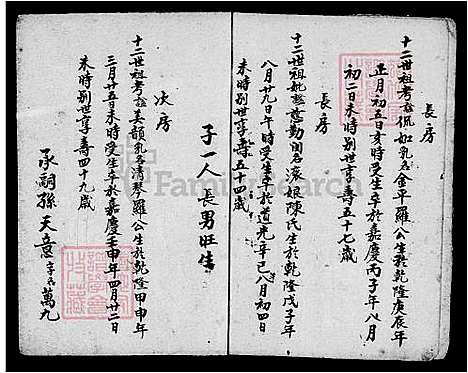 長房
十二世祖考諡侃如乳名金平羅公生於乾隆庚辰年
正月初五日亥時受生卒於嘉慶丙子年八月
初二日未時別世享壽五十七歲
長房
十二世祖妣諡慈勤閨名滾娘陳氏生於乾隆戊子年
八月廿九日午時受生卒於道光辛巳八月初四
未時別世享壽五十四歲
子一人 長男旺生
次房
十二世祖考諡美顏乳名清琴羅公生於乾隆甲申年
三月廿五日未時受生卒於嘉慶壬申年四月廿二日
未時別世享壽四十九歲
承詞孫 天意 字名 萬九
FamilySearch